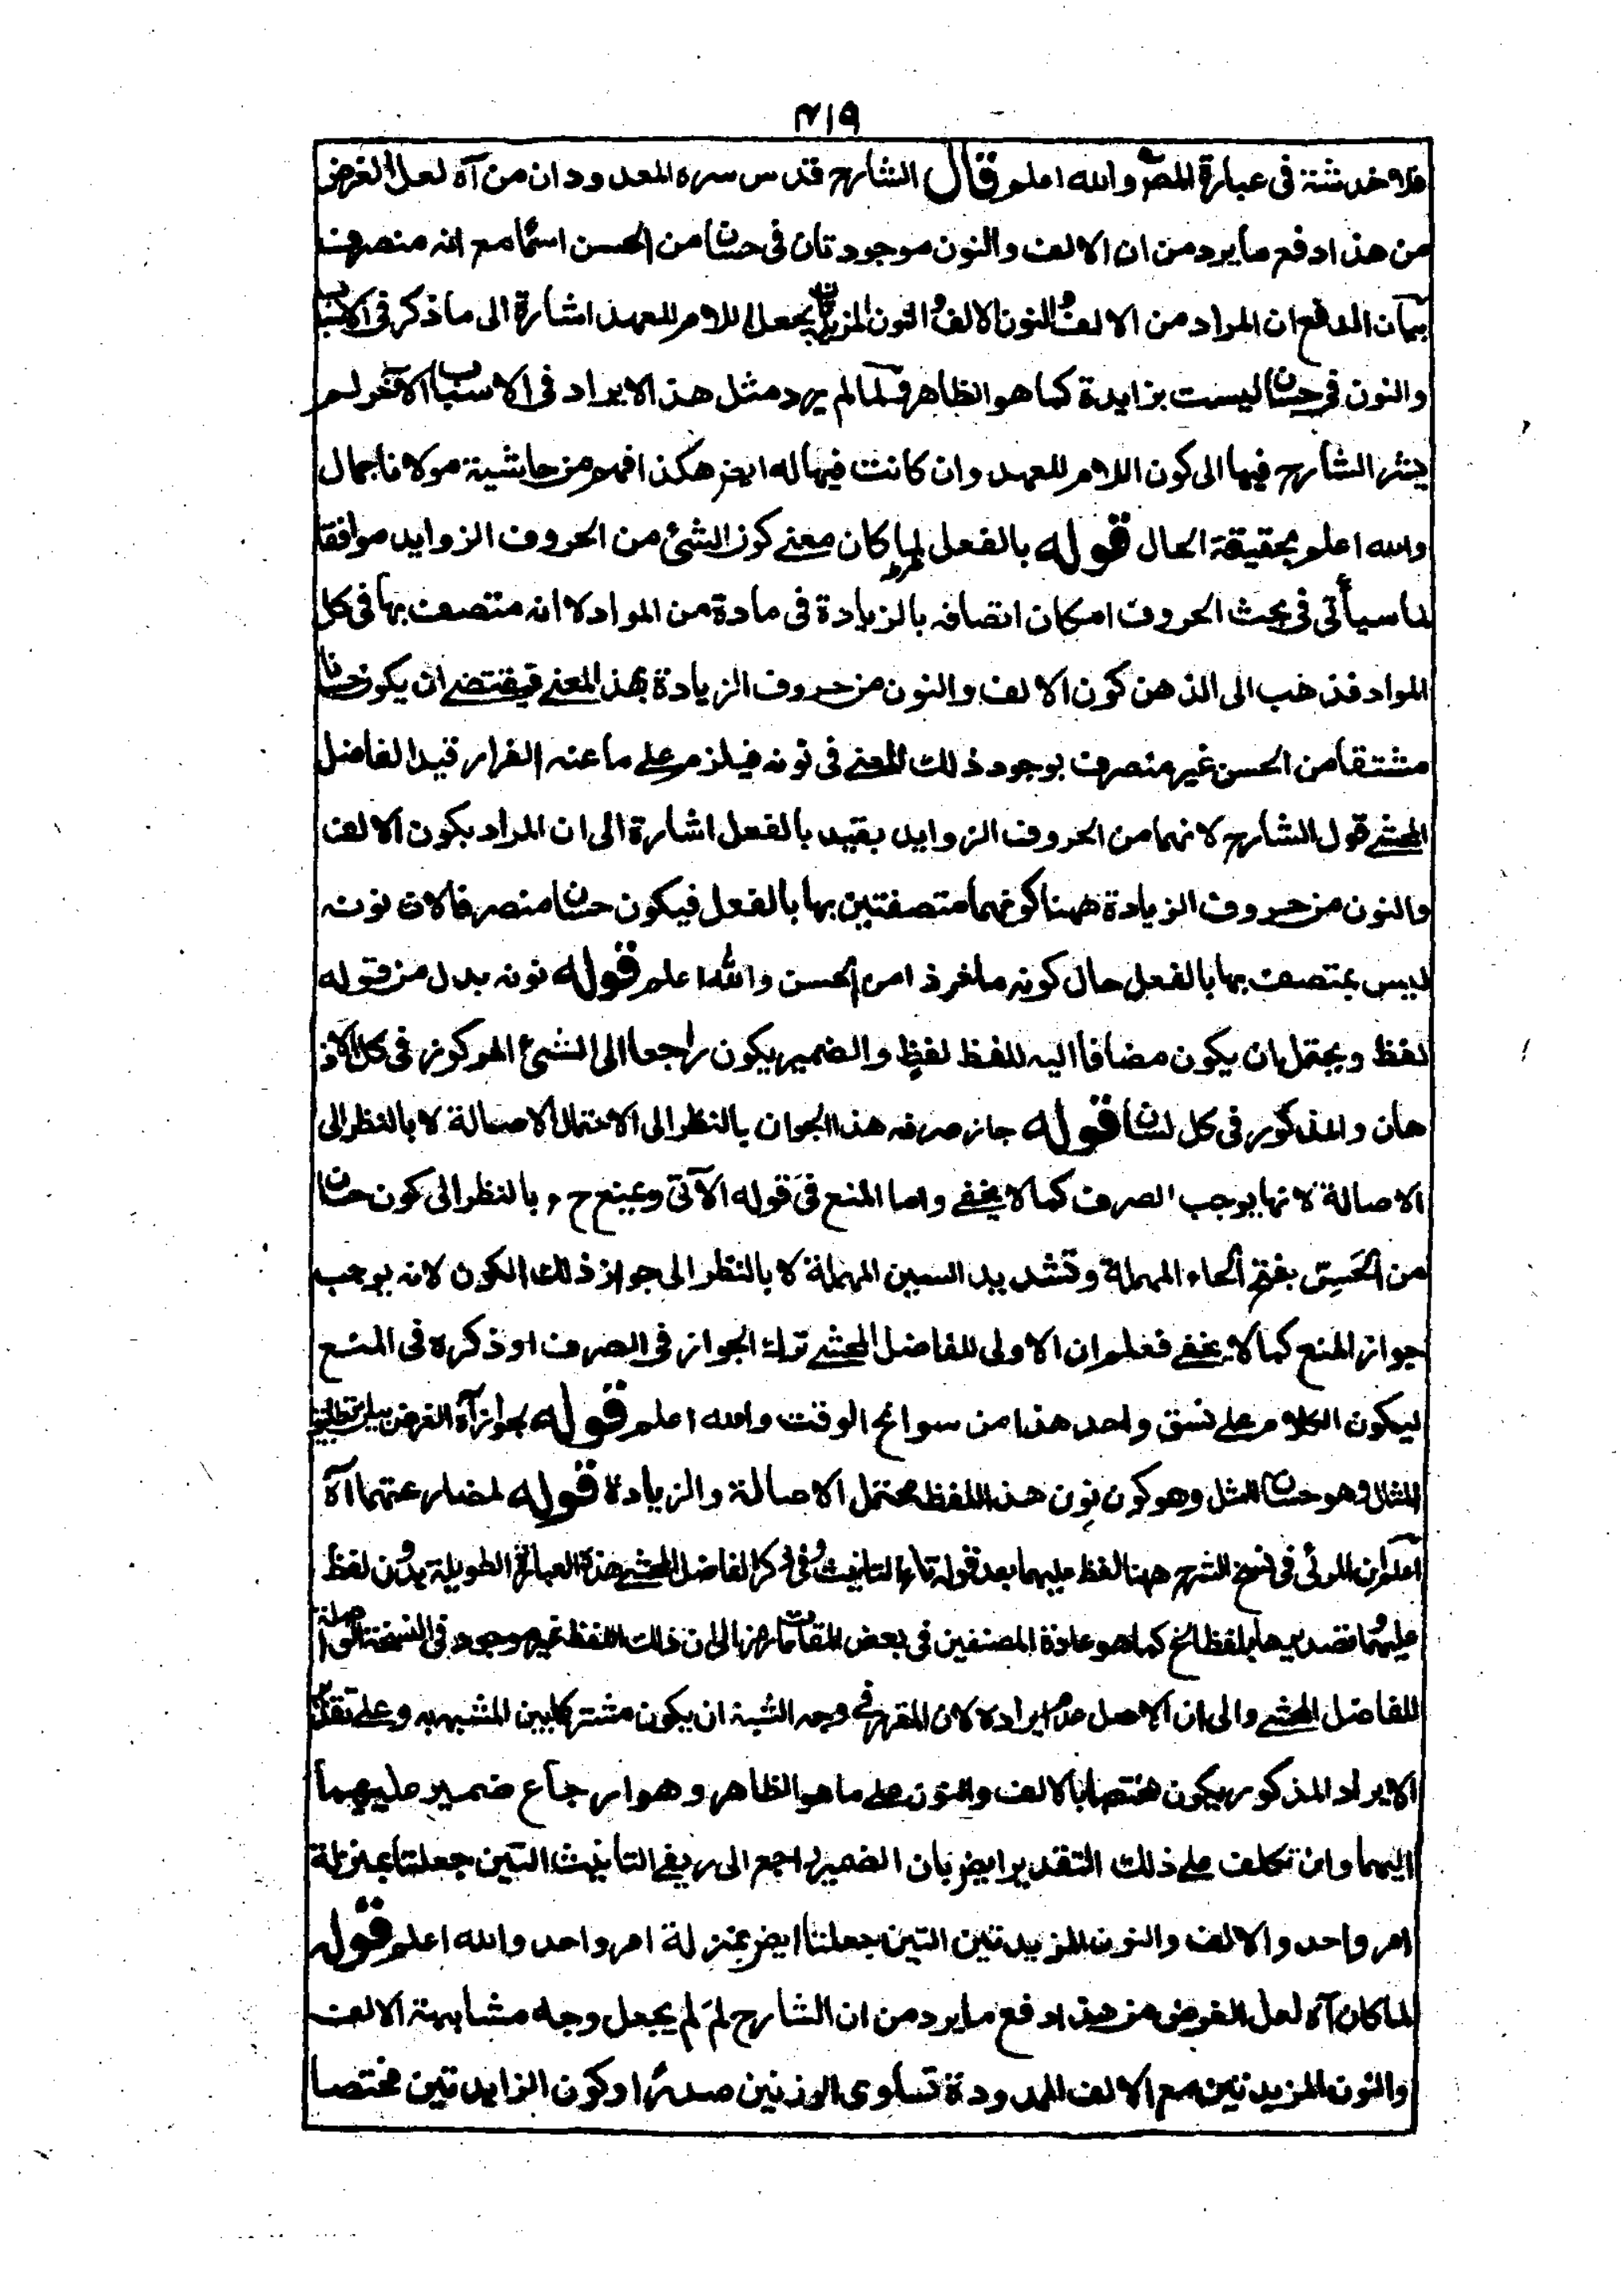 ۴۱۹
فلا خدشة فى عبارة المصؒ والله اعلم قال الشارح قدس سره المعدودان من آه لعل الغرض
من هذا دفع ما يرد من ان الالف والنون موجودتان فى حسان من الحسن اسما مع انه منصرف
بيان الدفع ان المراد من الالف والنون الالف والنون المزيدتان بجعل اللام للعهد اشارة الى ما ذكر فى الاسباب
والنون فى حسان ليست بزايدة كما هو الظاهر فلما لم يرد مثل هذا الايراد فى الاسباب الآخر لم
يشر الشارح فيها الى كون اللام للعهد وان كانت فيها له ايضر هكذا افهم من حاشية مولانا جمال
والله اعلم بحقيقة الحال قوله بالفعل لما كان معنے كون الشئ من الحروف الزوايد موافقا
لما سيأتى فى بحث الحروف امكان اتصافه بالزيادة فى مادة من المواد لا انه متصف بها فى كل
المواد فذهب الى الذهن كون الالف والنون من حروف الزيادة بهذا المعنے فيقتضے ان يكون حسان
مشتقا من الحسن غير منصرف بوجود ذلك المعنے فى نونه فيلزم علے ما عنه الفرار قيد الفاضل
المحشے قول الشارح لانهما من الحروف الزوايد بقيد بالفعل اشارة الى ان المراد بكون الالف
والنون من حروف الزيادة ههنا كونهما متصفتين بها بالفعل فيكون حسان منصرفا لان نونه
ليس بمتصف بها بالفعل حال كونه ماخوذا من الحسن والله اعلم قوله نونه بدل من قوله
لفظ ويحتمل ان يكون مضافا اليه للفظ لفظٍ والضمير يكون راجعا الى الشئ المركوز فى كل الاذ
هان والمذكور فى كل لسان قوله جاز صرفه هذا الجواز بالنظر الى الاحتمال الاصالة لا بالنظر الى
الاصالة لانها يوجب الصرف كما لا يخفے واما المنع فى قوله الآتى ويمنع ح ء بالنظر الى كون حسان
من الحَسِّ بفتح الحاء المهملة وتشديد السين المهملة لا بالنظر الى جواز ذلك الكون لانه يوجب
جواز المنع كما لا يخفے فعلم ان الاولى للفاضل المحشے ترك الجواز فى الصرف او ذكره فى المنع
ليكون الكلام علے نسق واحد هذا من سوانح الوقت والله اعلم قوله بجواز آه الغرض بيان تطبيق
المثال وهو حسان للمثل وهو كون نون هذا اللفظ محتمل الاصالة والزيادة قوله لمضارعتهما آه
اعلم ان المرئى فى نسخ الشرح ههنا لفظ عليهما بعد قوله تاء التانيث وفى ذكر الفاضل المحشے هذه العبارة الطويلة بدون لفظ
عليهما وتصديرها بلفظ الخ كما هو عادة المصنفين فى بعض المقامات رمز الى ان ذلك اللفظ غير موجود فى النسخة الواصلة
للفاضل المحشے والى ان الاصل عدم ايراده لان المقرر فے وجه الشبه ان يكون مشتركا بين المشبه به وعلے تقدير
الايراد المذكور يكون مختصا بالالف والنون علے ما هو الظاهر وهو ارجاع ضمير عليهما
اليهما وان تكلف علے ذلك التقدير ايضر بان الضمير راجع الى الفے التانيث التين جعلتا بمنزلة
امر واحد والالف والنون المزيدتين التين جعلتا ايضر بمنزلة امر واحد والله اعلم قوله
لما كان آه لعل الغرض من هذا دفع ما يرد من ان الشارح لمَ لم يجعل وجه مشابهة الالف
والنون المزيدتين مع الالف الممدودة تساوى الوزنين صدرًا وكون الزايدتين مختصا